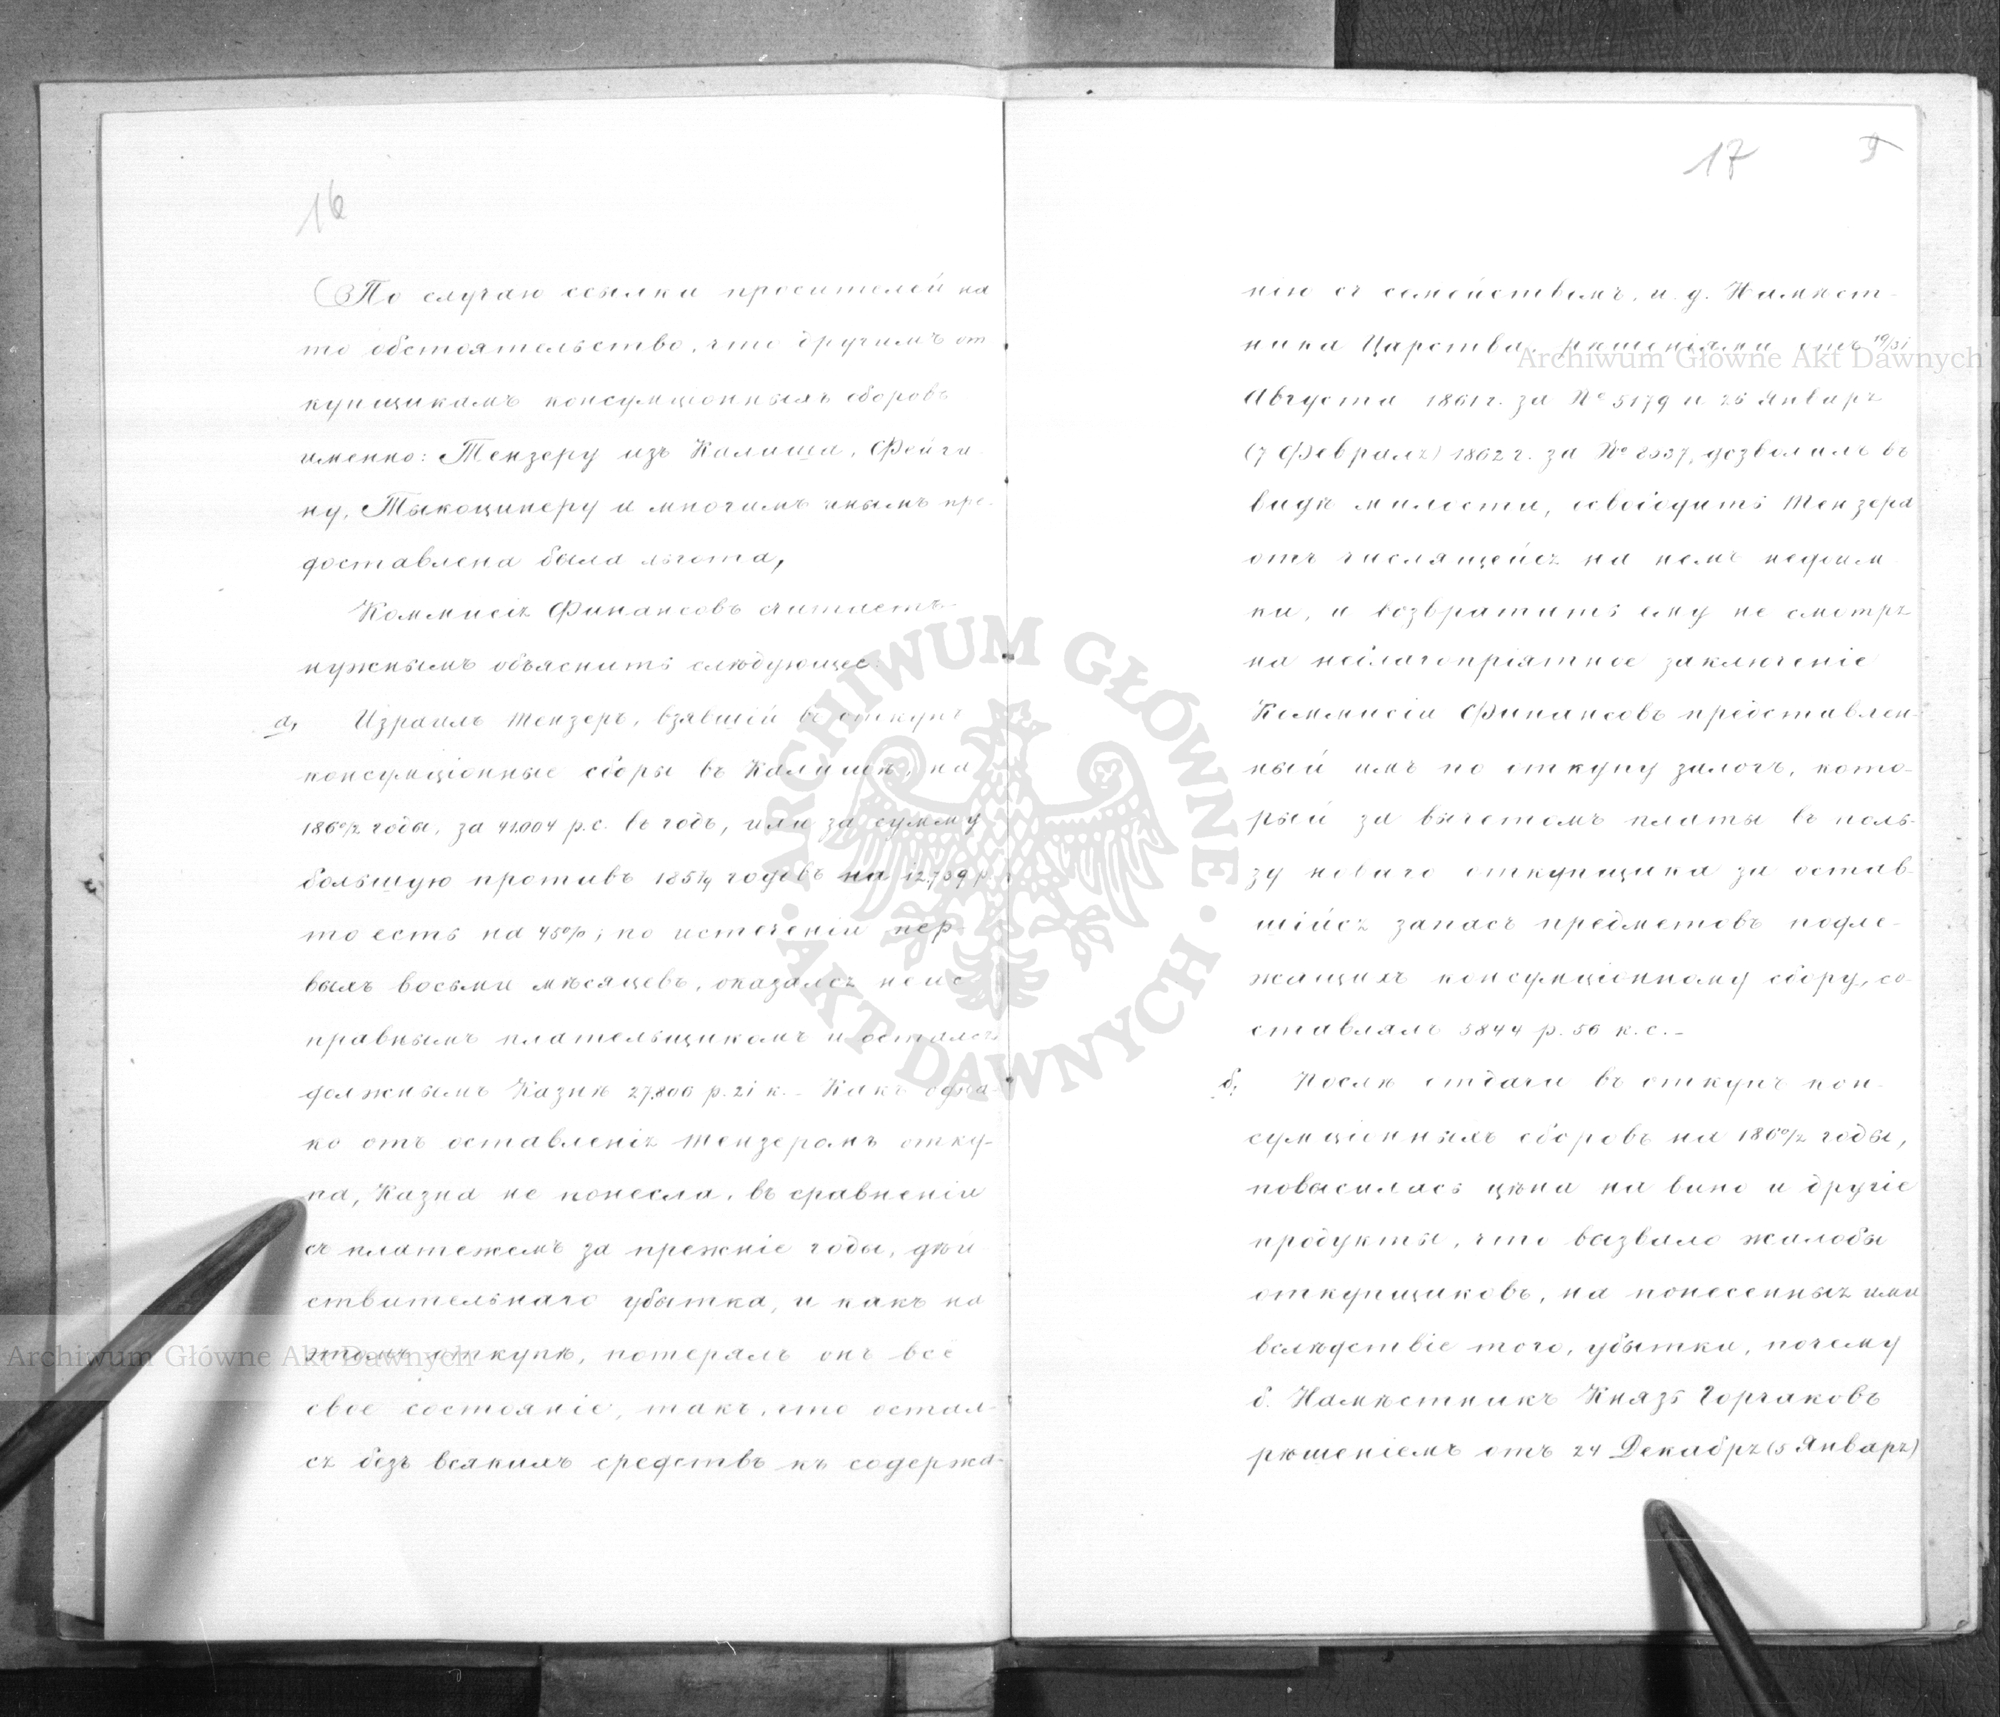 16
По случаю ссылки просителей на
то обстоятельство, что другимъ от
купщикамъ консумціонныхъ сборовъ
именно: Тензеру изъ Калиша, Фейги
ну, Тыкоцинеру и многимъ инымъ пре-
доставлена была льгота,
Коммисія Финансовъ считаетъ
нужнымъ объяснить слѣдующее:
а, Израиль Тензеръ, взявшій въ откупъ
консумціонные сборы въ Калишѣ, на
1860/2 годы, за 41.004 р.с. въ годъ, или за сумму
большую противъ 1857/9 годовъ на 12.739 р.
то есть на 45%; по истеченіи пер-
выхъ восьми мѣсяцевъ, оказался неис
правнымъ плательщикомъ и остался
должнымъ Казнѣ 27.806 р. 21 к. – Какъ одна-
ко отъ оставленія Тензеромъ отку-
па, Казна не понесла, въ сравненіи
съ платежемъ за прежніе годы, дѣй
ствительнаго убытка, и какъ на
этомъ откупѣ, потерялъ онъ все
свое состояніе, такъ, что остал-
ся безъ всякихъ средствъ къ содержа-
17
9
нію съ семействомъ, и. д. Намѣст-
ника Царства, рѣшеніями отъ 19/31
Августа 1861 г. за № 5179 и 26 Января
(7 Февраля) 1862 г. за №, дозволилъ въ
видѣ милости, освободить Тензера
отъ числящейся на немъ недоим
ки, и возвратить ему не смотря
на неблагопріятное заключеніе
Коммисіи Финансовъ представлен-
ный имъ по откупу залогъ, кото-
рый за вычетомъ платы въ поль-
зу новаго откупщика за остав-
шійся запасъ предметовъ подле-
жащихъ консумціонному сбору, со
ставлялъ 5844 р. 56 к. с. –
б, Послѣ отдачи въ откупъ кон-
сумціонныхъ сборовъ на 1860/2 годы,
повысилась цѣна на вино и другіе
продукты, что вызвало жалобы
откупщиковъ, на понесенныя ими
вслѣдствіе того, убытки, почему
б. Намѣстникъ Князь Горчаковъ
рѣшеніемъ отъ 24 Декабря (5 Января)
Archiwum Główne Akt Dawnych
Archiwum Główne Akt Dawnych
ARCHIWUM GŁÓWNE AKT DAWNYCH